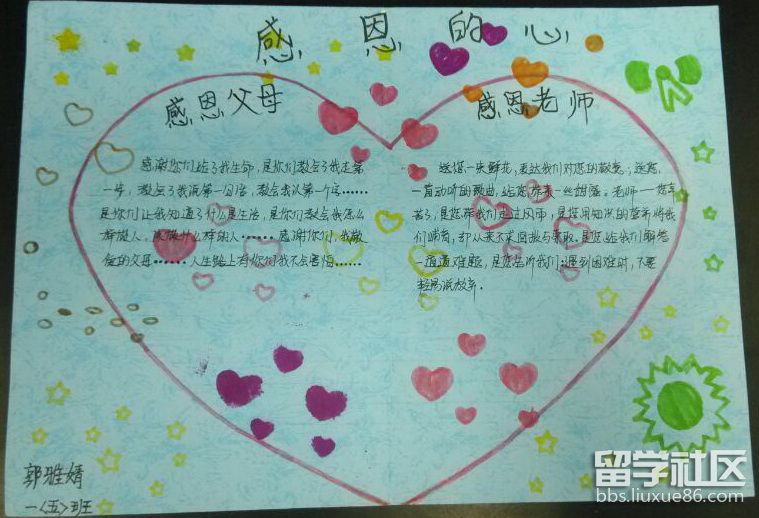 感恩的心
感恩父母
感谢你们给了我生命,是你们教会了我走第
一步,教会了我说第一句话,教会我认第一个字……
是你们让我知道了什么是生活,是你们教会我怎么
样做人,该做什么样的人……感谢你们,我敬
爱的父母……人生路上有你们我不会害怕……
感恩老师
送您一束鲜花,表达我们对您的敬意;送您
一首动听的歌曲,给您带来一丝甜蜜。老师——您辛
苦了,是您带我们走过风雨,是您用知识的营养将我
们哺育,却从来不求回报与索取。是您给我们解答
一道道难题,是您告诉我们:遇到困难时,不要
轻易说放弃。
郭雅婧
一〈五〉班
留学社区
bbs.liuxue86.com